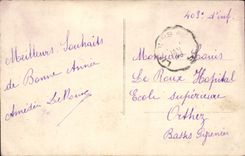 403e d'inf.
Meilleurs Souhaits
de Bonne Année
Amédée Le Roux
Monsieur Louis
Le Roux Hopital
Ecole supérieure
Orthez
Basses Pyrénées